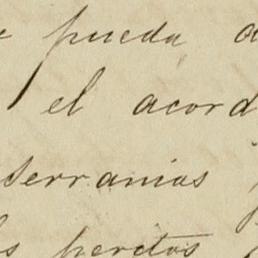 pueda
el acord
serranias
peretos